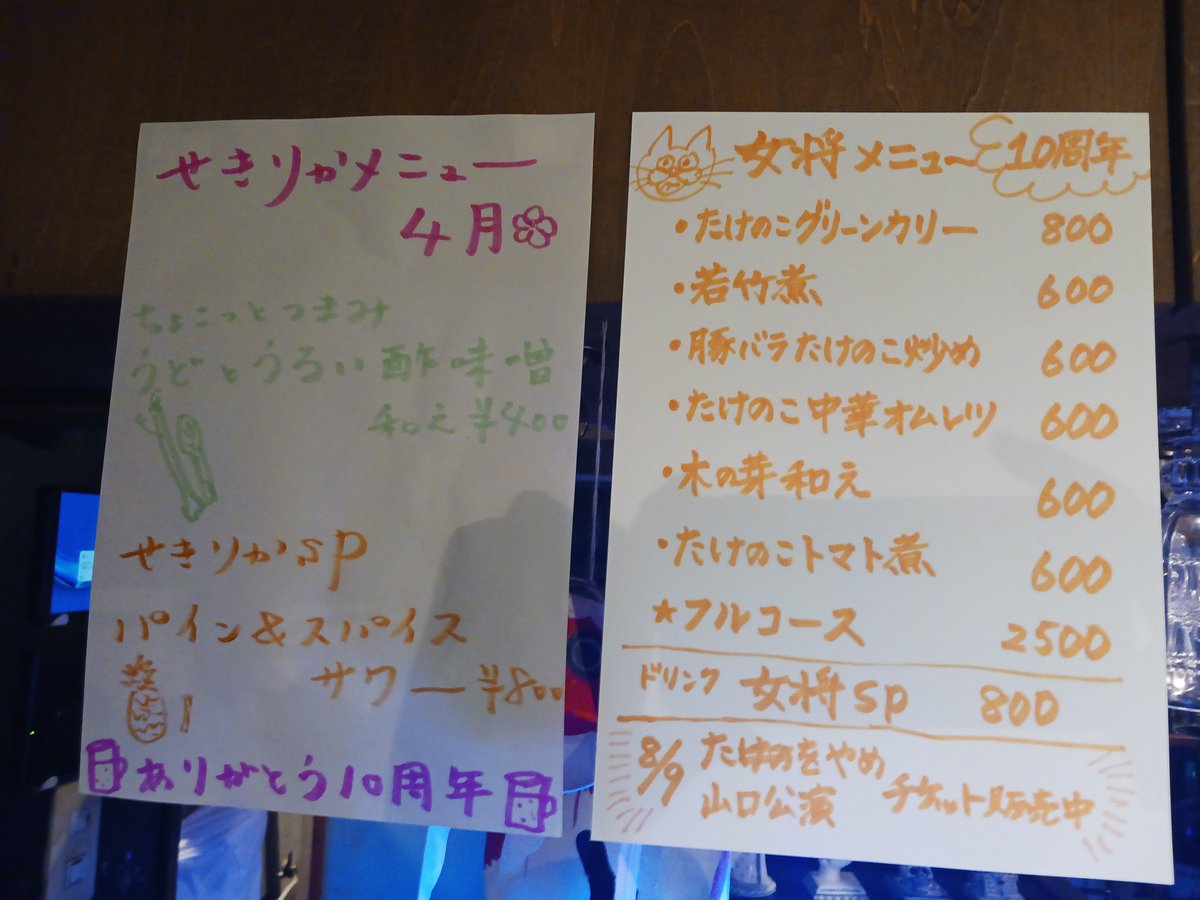 せきりかメニュー
4月
ちょこっとつまみ
うどとうるい酢味噌
和え¥400
せきりかSP
パイン&スパイス
サワー¥800
ありがとう10周年
女将メニュー 10周年
・たけのこグリーンカリー 800
・若竹煮 600
・豚バラたけのこ炒め 600
・たけのこ中華オムレツ 600
・木の芽和え 600
・たけのこトマト煮 600
★フルコース 2500
ドリンク 女将SP 800
8/9 たほのをやめ
山口公演 チケット販売中